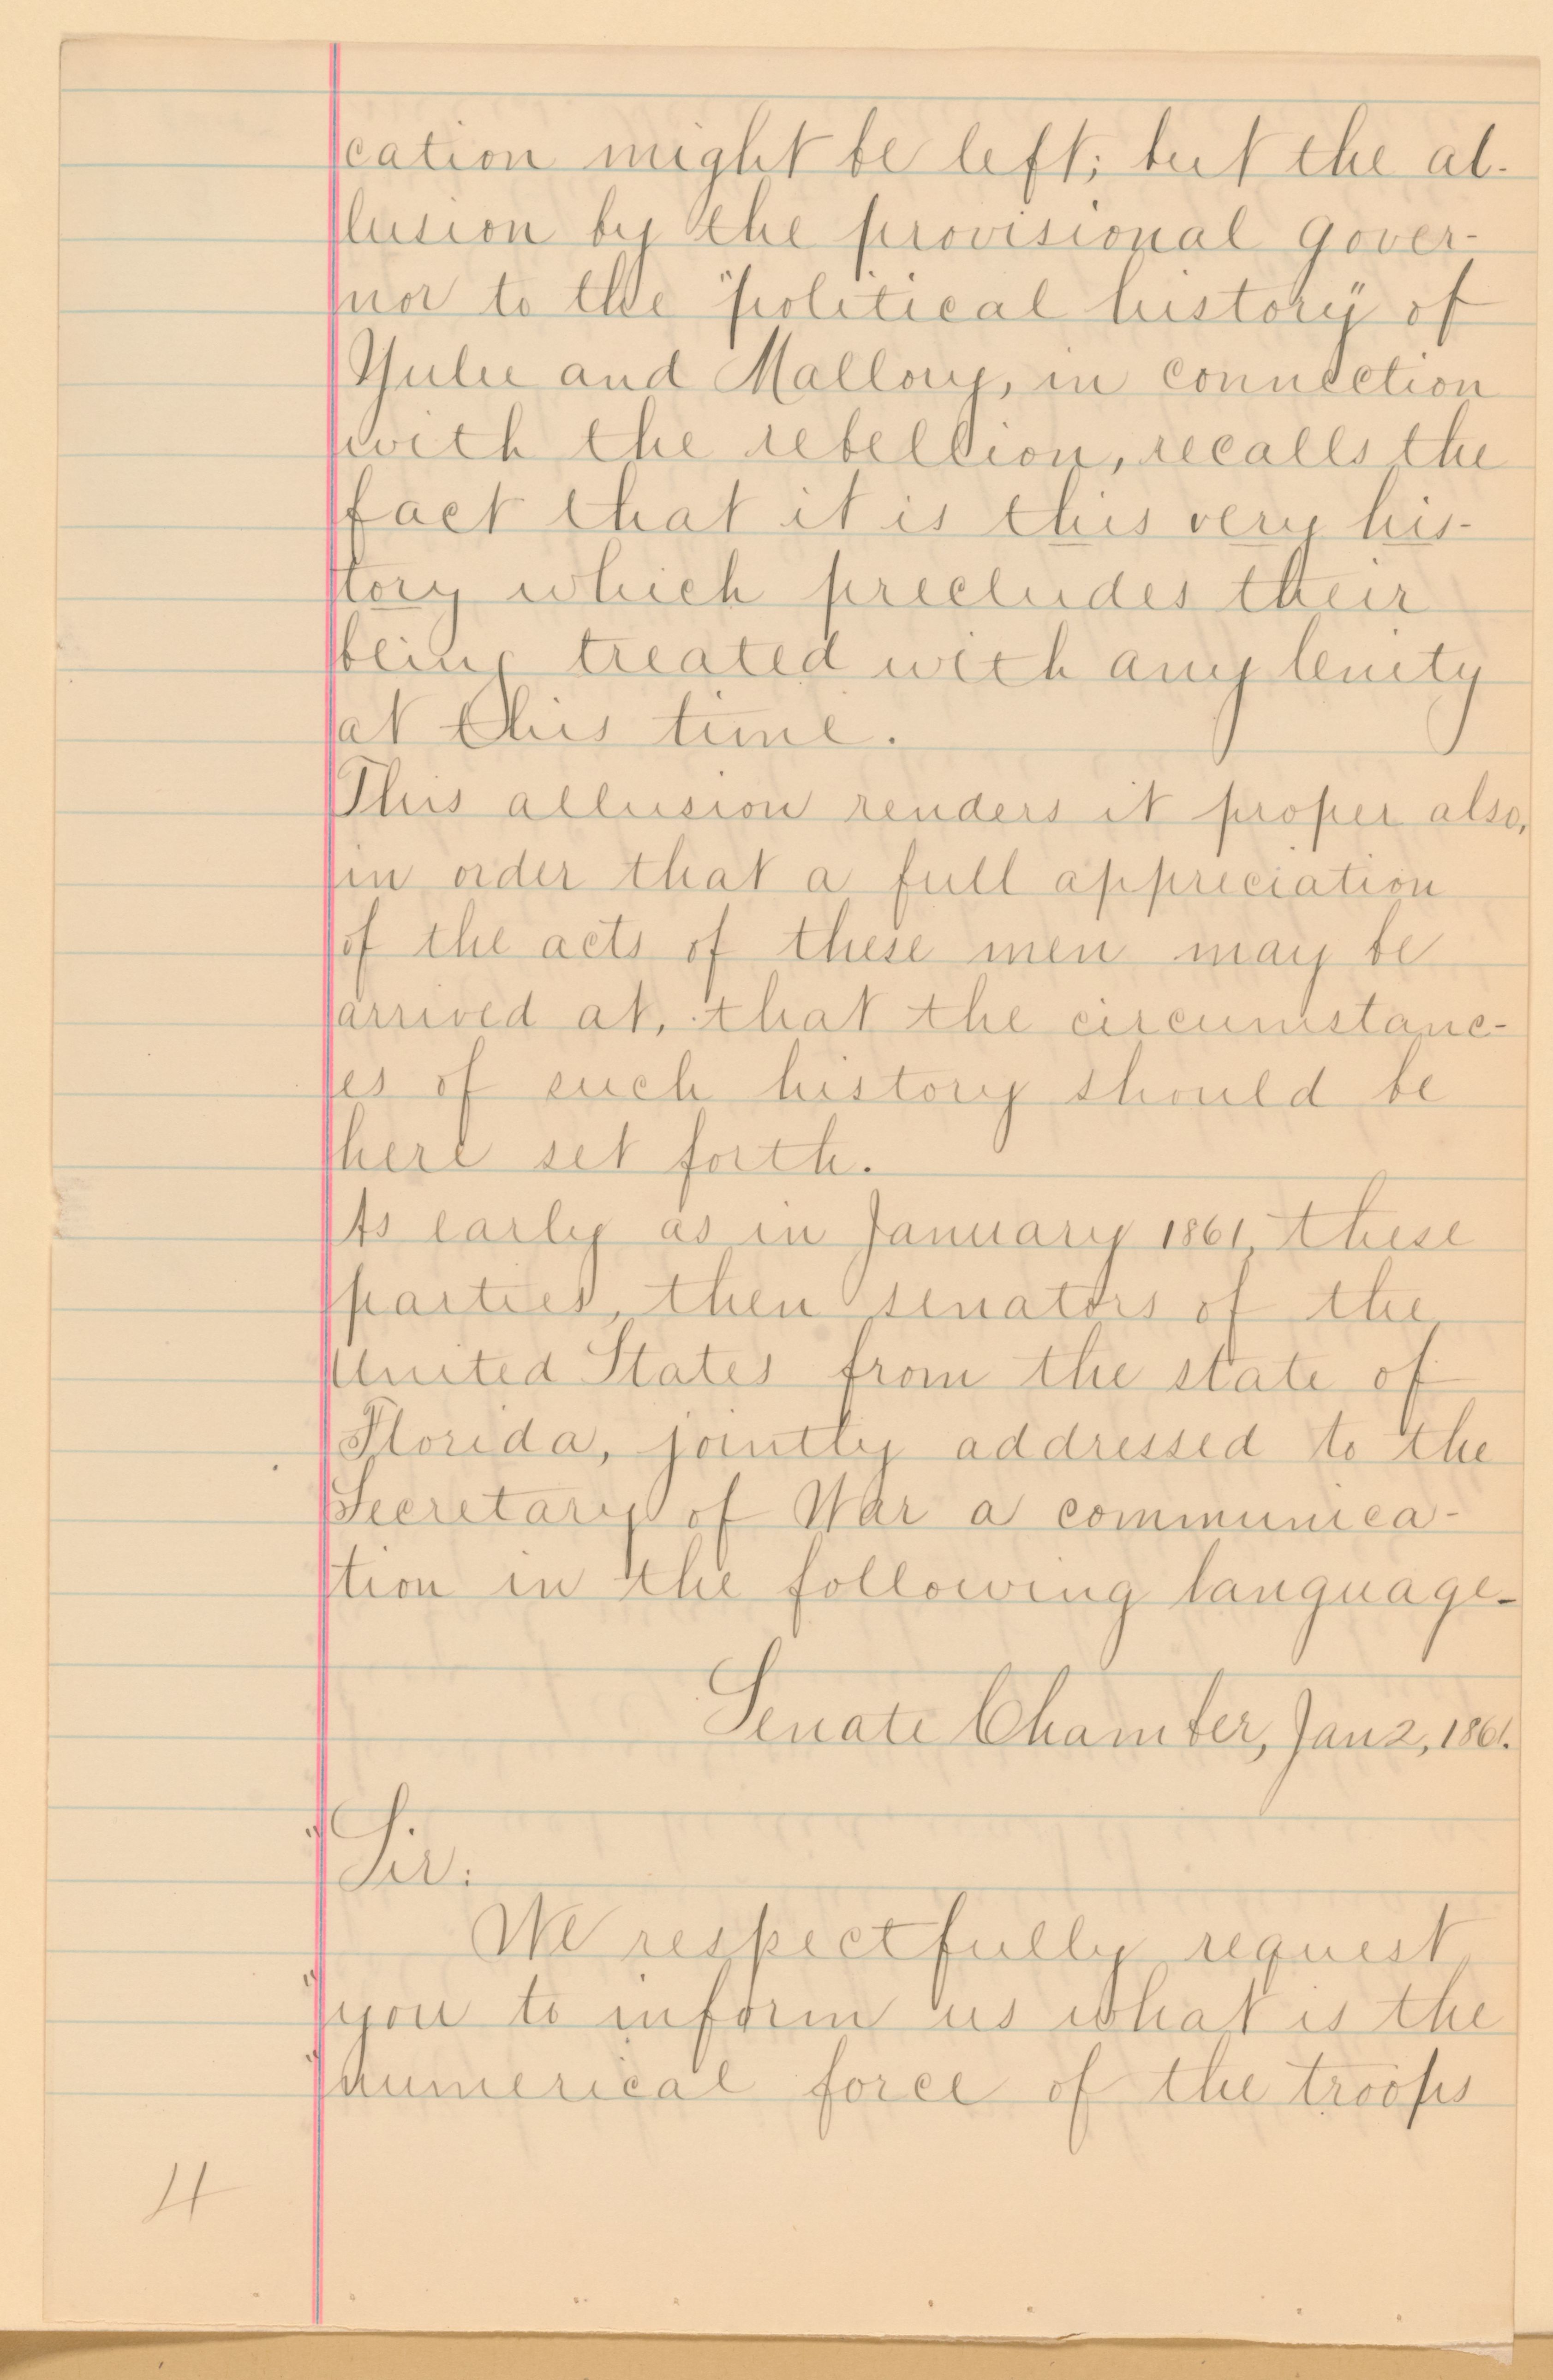 cation might be left; but the al-
lusion by the provisional gover-
nor to the "political history" of
Yulee and Mallory, in connection
with the rebellion, recalls the
fact that it is this very his-
tory which precludes their
being treated with any lenity
at this time.
This allusion renders it proper also,
in order that a full appreciation
of the acts of these men may be
arrived at, that the circumstanc-
es of such history should be
here set forth.
As early as in January 1861, these
parties, then senators of the
United States from the state of
Florida, jointly addressed to the
Secretary of War a communica-
tion in the following language-
Senate Chamber, Jan 2, 1861.
"Sir:
We respectfully request
"you to inform us what is the
"numerical force of the troops
4